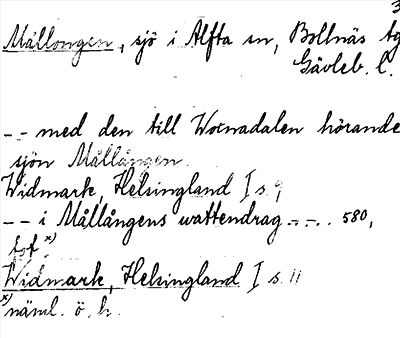 3
Mållången, sjö i Alfta sn, Bollnäs tg
Gävleb. l.
-- med den till Woxnadalen hörande
sjön Mållången.
Widmark, Helsingland I s. 9
-- i Mållångens wattendrag -- -- 580,
tot. x)
Widmark, Helsingland I s. 11
x) näml. ö. h.